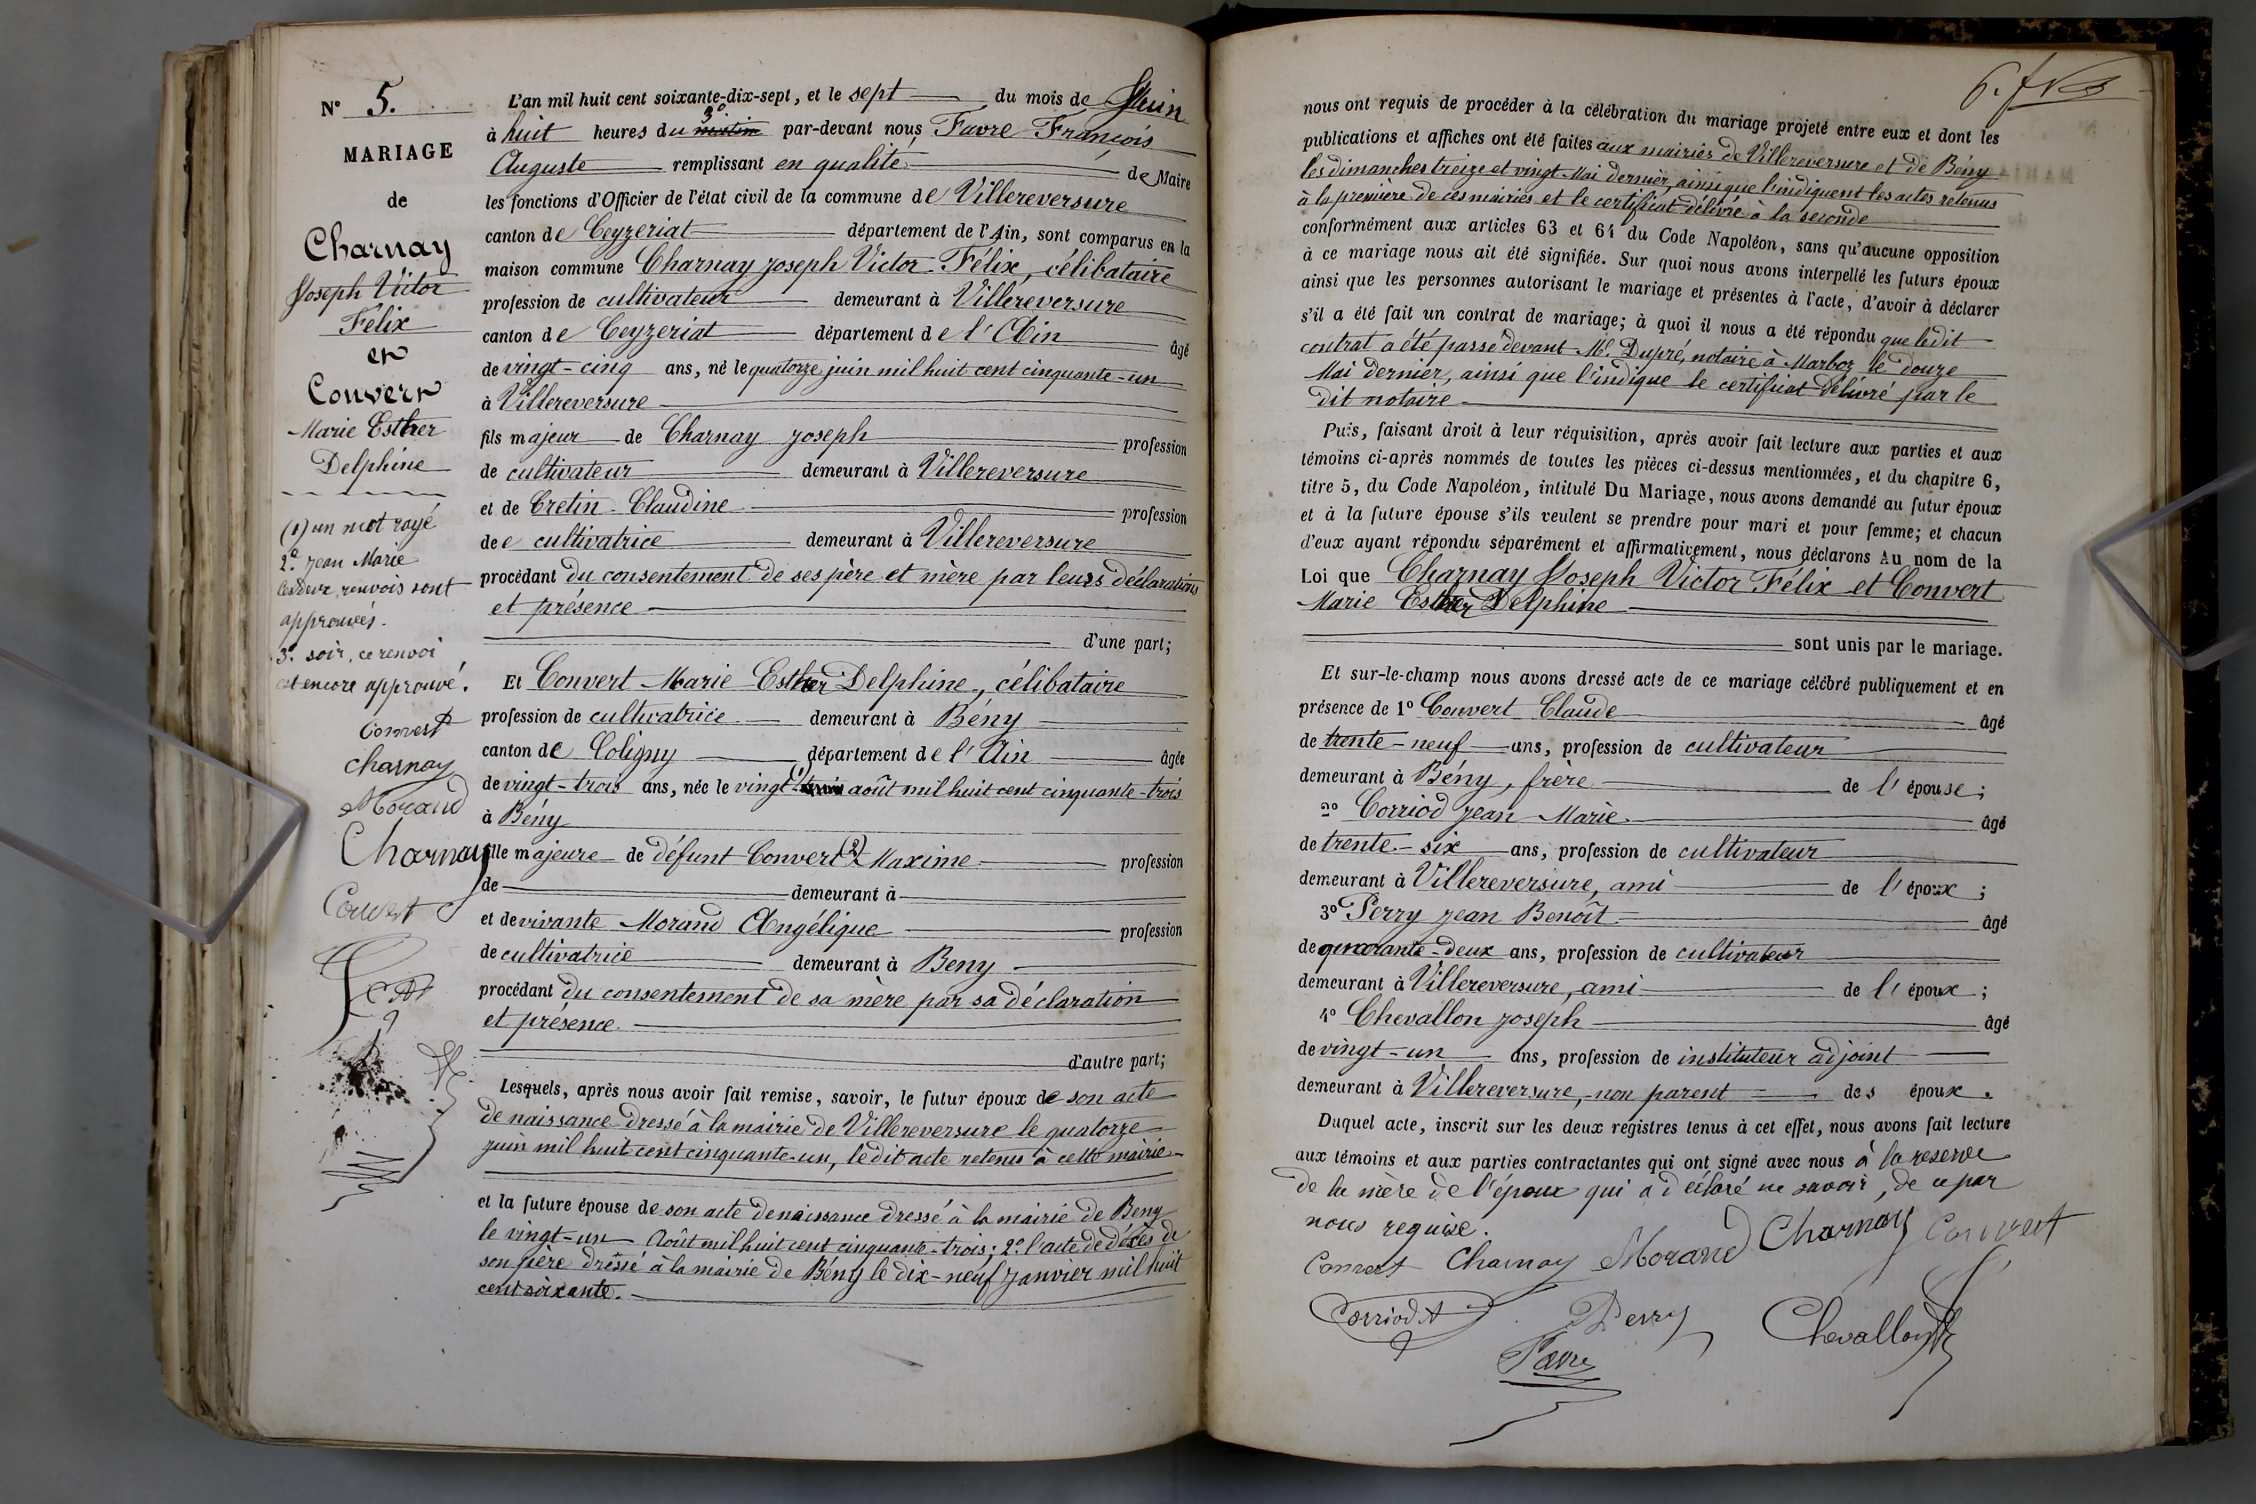 N° 5.
MARIAGE
de
Charnay
Joseph Victor
Félix
et
Convert
Marie Esther
Delphine
(1) un mot rayé
2° Jean Marie
Les deux renvois sont
approuvés.
3° soir, ce renvoi
est encore approuvé.
Convert
Charnay
Morand
Charnay
Convert
L'an mil huit cent soixante-dix-sept, et le sept du mois de Juin
à huit heures du matin 3° par-devant nous Favre François
Auguste remplissant en qualité de Maire
les fonctions d'Officier de l'état civil de la commune de Villereversure
canton de Ceyzeriat département de l'Ain, sont comparus en la
maison commune Charnay Joseph Victor Félix, célibataire
profession de cultivateur demeurant à Villereversure
canton de Ceyzeriat département de l'Ain âgé
de vingt-cinq ans, né le quatorze juin mil huit cent cinquante-un
à Villereversure
fils majeur de Charnay Joseph profession
de cultivateur demeurant à Villereversure
et de Cretin Claudine profession
de cultivatrice demeurant à Villereversure
procédant du consentement de ses père et mère par leurs déclarations
et présence
d'une part;
Et Convert Marie Esther Delphine, célibataire
profession de cultivatrice demeurant à Bény
canton de Coligny département de l'Ain âgée
de vingt-trois ans, née le vingt (1) août mil huit cent cinquante-trois
à Bény
fille majeure de défunt Convert (2) Maxime profession
de demeurant à
et de vivante Morand Angélique profession
de cultivatrice demeurant à Beny
procédant du consentement de sa mère par sa déclaration
et présence
d'autre part;
Lesquels, après nous avoir fait remise, savoir, le futur époux de son acte
de naissance dressé à la mairie de Villereversure le quatorze
juin mil huit cent cinquante-un, ledit acte retenu à cette mairie
et la future épouse de son acte de naissance dressé à la mairie de Beny
le vingt-un Août mil huit cent cinquante-trois; 2° l'acte de décès de
son père dressé à la mairie de Bény le dix-neuf janvier mil huit
cent soixante.
nous ont requis de procéder à la célébration du mariage projeté entre eux et dont les
publications et affiches ont été faites aux mairies de Villereversure et de Bény
les dimanches treize et vingt Mai dernier, ainsi que l'indiquent les actes retenus
à la première de ces mairies et le certificat délivré à la seconde
conformément aux articles 63 et 64 du Code Napoléon, sans qu'aucune opposition
à ce mariage nous ait été signifiée. Sur quoi nous avons interpellé les futurs époux
ainsi que les personnes autorisant le mariage et présentes à l'acte, d'avoir à déclarer
s'il a été fait un contrat de mariage; à quoi il nous a été répondu que ledit
contrat a été passé devant Me. Dupré, notaire à Marboz le douze
Mai dernier, ainsi que l'indique le certificat délivré par le
dit notaire
Puis, faisant droit à leur réquisition, après avoir fait lecture aux parties et aux
témoins ci-après nommés de toutes les pièces ci-dessus mentionnées, et du chapitre 6,
titre 5, du Code Napoléon, intitulé Du Mariage, nous avons demandé au futur époux
et à la future épouse s'ils veulent se prendre pour mari et pour femme; et chacun
d'eux ayant répondu séparément et affirmativement, nous déclarons Au nom de la
Loi que Charnay Joseph Victor Félix et Convert
Marie Esther Delphine
sont unis par le mariage.
Et sur-le-champ nous avons dressé acte de ce mariage célébré publiquement et en
présence de 1° Convert Claude âgé
de trente-neuf ans, profession de cultivateur
demeurant à Bény, frère de l'épouse;
2° Corriod Jean Marie âgé
de trente-six ans, profession de cultivateur
demeurant à Villereversure, ami de l'époux;
3° Perry Jean Benoît âgé
de quarante-deux ans, profession de cultivateur
demeurant à Villereversure, ami de l'époux;
4° Chevallon Joseph âgé
de vingt-un ans, profession de instituteur adjoint
demeurant à Villereversure, non parent des époux.
Duquel acte, inscrit sur les deux registres tenus à cet effet, nous avons fait lecture
aux témoins et aux parties contractantes qui ont signé avec nous à la reserve
de la mère de l'époux qui a déclaré ne savoir, de ce par
nous requise.
Convert Charnay Morand Charnay Convert
Corriod Perry Chevallon
Favre